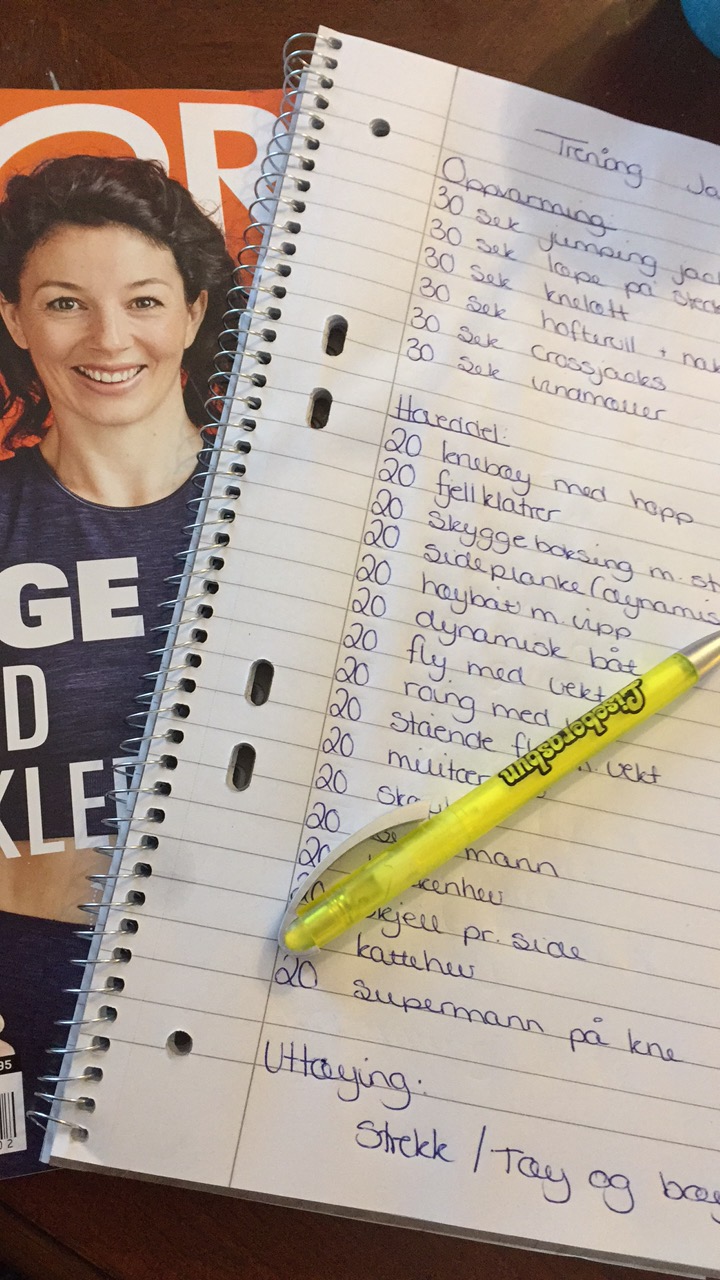 OR
GE
D
KLE
95
02
Trening Ja
Oppvarming
30 sek jumping jack
30 sek løpe på sted
30 sek kneløft
30 sek hofterull + nak
30 sek crossjacks
30 sek vindmøller
Hoveddel:
20 knebøy med hopp
20 fjellklatrer
20 skyggeboksing m. st
20 sideplanke (dynamis
20 høybåt m. vipp
20 dynamisk båt
20 fly med vekt
20 roing med
20 stående fl vekt
20 militær
20
20 mann
20 kkenhev
20 skjell pr. side
kattehev
20 supermann på kne
Uttøying:
Strekk / Tøy og bøy
Lisebergsbun